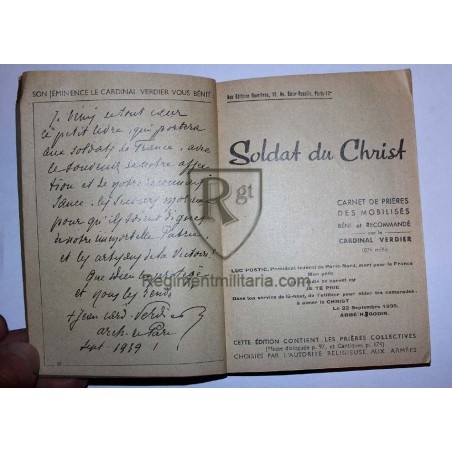 SON EMINENCE LE CARDINAL VERDIER VOUS BÉNIT
Je bénis de tout cœur
ce petit livre, qui portera
aux soldats de France, avec
le souvenir de notre affec-
tion et de notre reconnais-
sance, les secours
pour qu'ils soient dignes
de notre immortelle Patrie
et les artisans de la Victoire!
Que Dieu
et vous
+ Jean card. Verdier
arch. de Paris
Sept. 1939!
Paris-12e
Soldat du Christ
CARNET DE PRIÈRES
DES MOBILISÉS
BÉNI et RECOMMANDÉ
par le
CARDINAL VERDIER
(87e mille)
LUC POSTIC, Président fédéral de Paris-Nord, mort pour la France
Mon père
JE TE PRIE
Dans ton service de là-haut, de t'utiliser pour aider tes camarades
à aimer le CHRIST
Le 22 Septembre 1939,
ABBÉ H. GODIN.
CETTE ÉDITION CONTIENT LES PRIÈRES COLLECTIVES
(Messe dialoguée p. 97, et Cantiques p. 174)
CHOISIES PAR L'AUTORITÉ RELIGIEUSE AUX ARMÉES
Rgt
Regimentmilitaria.com